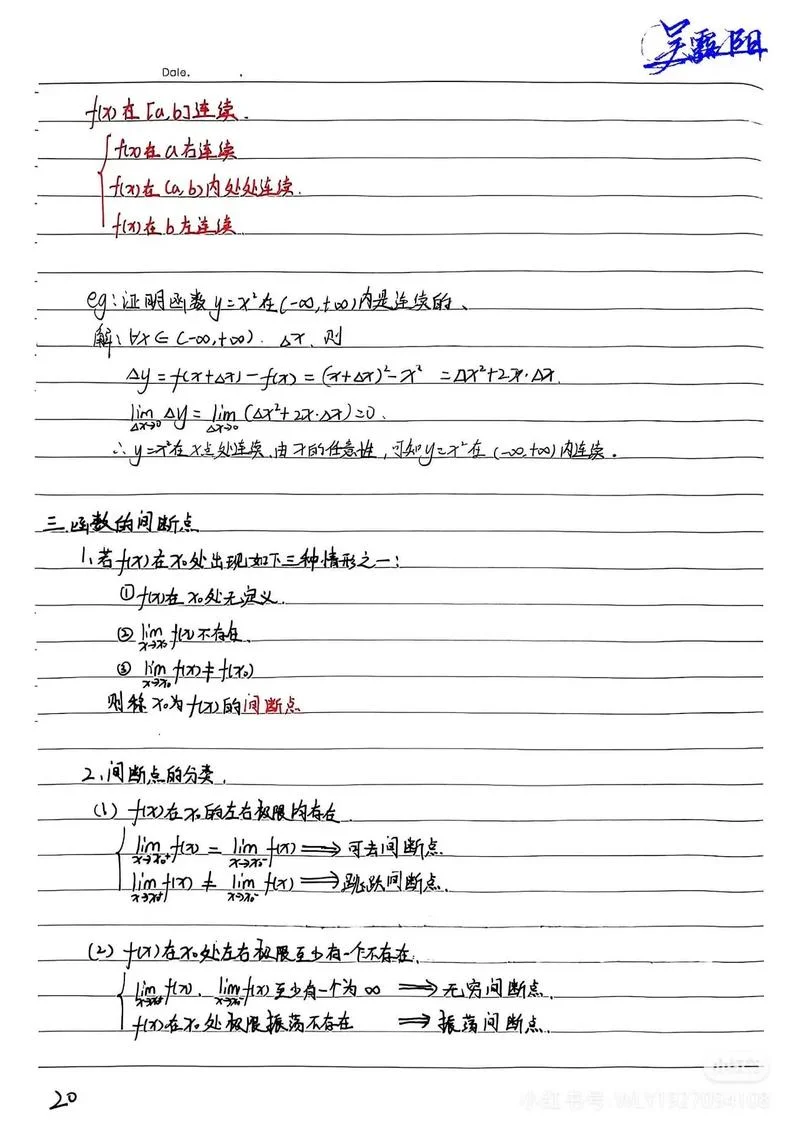 吴露阳
Date. .
f(x)在[a,b]连续.
f(x)在a右连续
f(x)在(a,b)内处处连续.
f(x)在b左连续
eg:证明函数y=x²在(-∞,+∞)内是连续的、
解:∀x∈(-∞,+∞). Δx、则
Δy=f(x+Δx)-f(x)=(x+Δx)²-x² =Δx²+2x·Δx.
lim Δx→0 Δy=lim Δx→0 (Δx²+2x·Δx)=0.
∴y=x²在x点处连续.由x的任意性,可知y=x²在(-∞,+∞)内连续.
三.函数的间断点
1、若f(x)在x₀处出现如下三种情形之一:
①f(x)在x₀处无定义.
②lim x→x₀ f(x)不存在、
③ lim x→x₀ f(x)≠f(x₀)
则称x₀为f(x)的间断点
2、间断点的分类.
(1) f(x)在x₀的左右极限均存在.
lim x→x₀⁺ f(x) = lim x→x₀⁻ f(x) ⟹ 可去间断点.
lim x→x₀⁺ f(x) ≠ lim x→x₀⁻ f(x) ⟹ 跳跃间断点.
(2) f(x)在x₀处左右极限至少有一个不存在.
lim x→x₀⁺ f(x)、lim x→x₀⁻ f(x)至少有一个为∞ ⟹ 无穷间断点.
f(x)在x₀处极限振荡不存在 ⟹ 振荡间断点.
20
小红书
小红书号:WLY1927094108